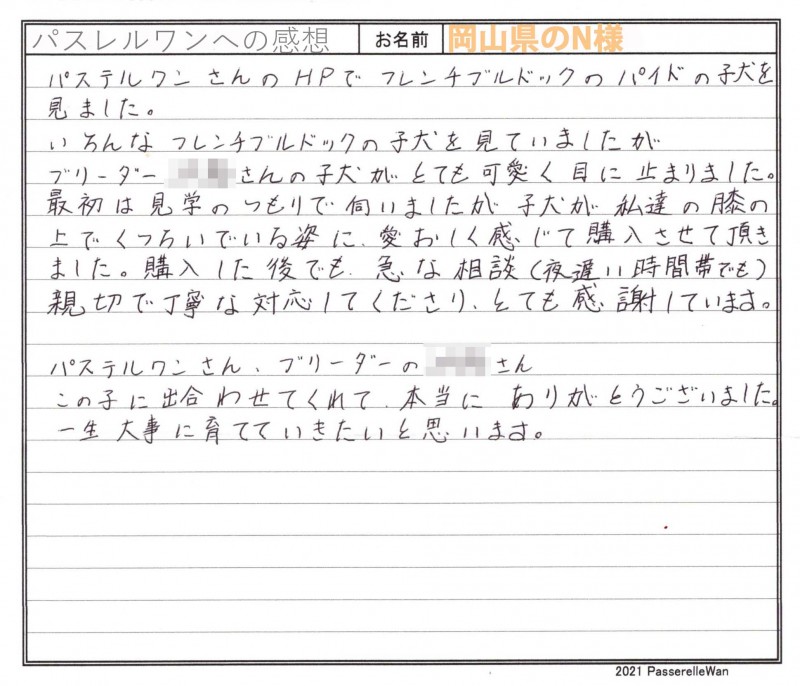 パスレルワンへの感想 お名前 岡山県のN様
パステルワンさんのHPでフレンチブルドックのパイドの子犬を
見ました。
いろんなフレンチブルドックの子犬を見ていましたが
ブリーダー さんの子犬がとても可愛く目に止まりました。
最初は見学のつもりで伺いましたが子犬が私達の膝の
上でくつろいでいる姿に、愛おしく感じて購入させて頂き
ました。購入した後でも、急な相談(夜遅い時間帯でも)
親切で丁寧な対応してくださり、とても感謝しています。
パステルワンさん、ブリーダーの さん
この子に出合わせてくれて、本当に ありがとうございました。
一生大事に育てていきたいと思います。
2021 PasserelleWan